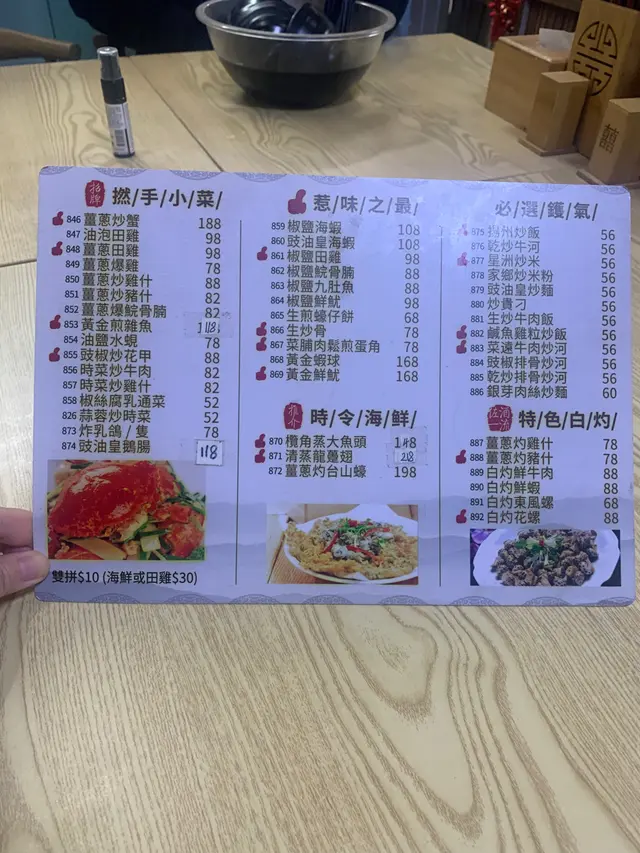 招牌 撚/手/小/菜/
846 薑蔥炒蟹 188
847 油泡田雞 98
848 薑蔥田雞 98
849 薑蔥爆雞 78
850 薑蔥炒雞什 88
851 薑蔥炒豬什 82
852 薑蔥爆鯇骨腩 82
853 黃金煎雜魚 118
854 油鹽水蜆 78
855 豉椒炒花甲 88
856 時菜炒牛肉 82
857 時菜炒雞什 82
858 椒絲腐乳通菜 52
826 蒜蓉炒時菜 52
873 炸乳鴿 / 隻 78
874 豉油皇鵝腸 118
雙拼$10 (海鮮或田雞$30)
惹/味/之/最/
859 椒鹽海蝦 108
860 豉油皇海蝦 108
861 椒鹽田雞 98
862 椒鹽鯇骨腩 88
863 椒鹽九肚魚 88
864 椒鹽鮮魷 98
865 生煎蠔仔餅 68
866 生炒骨 78
867 菜脯肉鬆煎蛋角 78
868 黃金蝦球 168
869 黃金鮮魷 168
推介 時/令/海/鮮/
870 欖角蒸大魚頭
871 清蒸龍躉翅
872 薑蔥灼台山蠔 198
必/選/鑊/氣/
875 揚州炒飯 56
876 乾炒牛河 56
877 星洲炒米 56
878 家鄉炒米粉 56
879 豉油皇炒麵 56
880 炒貴刁 56
881 生炒牛肉飯 56
882 鹹魚雞粒炒飯 56
883 菜遠牛肉炒河 56
884 豉椒排骨炒河 56
885 乾炒排骨炒河 56
886 銀芽肉絲炒麵 60
佐酒一流 特/色/白/灼/
887 薑蔥灼雞什 78
888 薑蔥灼豬什 78
889 白灼鮮牛肉 88
890 白灼鮮蝦 88
891 白灼東風螺 68
892 白灼花螺 88